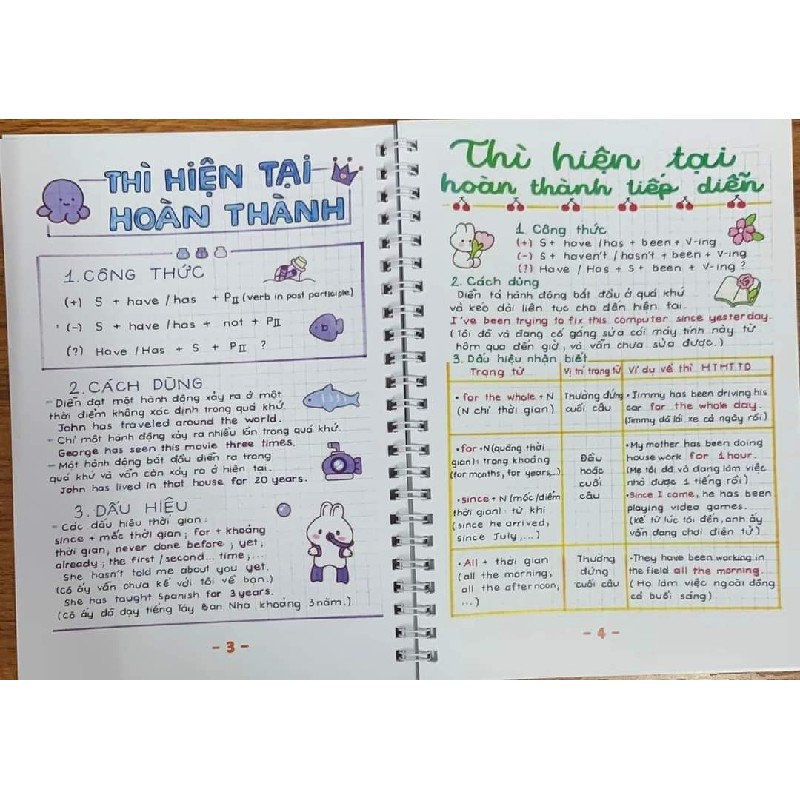 THÌ HIỆN TẠI
HOÀN THÀNH
1. CÔNG THỨC
(+) S + have / has + PII (verb in past participle)
(-) S + have / has + not + PII
(?) Have / Has + S + PII ?
2. CÁCH DÙNG
- Diễn đạt một hành động xảy ra ở một
thời điểm không xác định trong quá khứ.
John has traveled around the world.
- Chỉ một hành động xảy ra nhiều lần trong quá khứ.
George has seen this movie three times.
- Một hành động bắt đầu diễn ra trong
quá khứ và vẫn còn xảy ra ở hiện tại.
John has lived in that house for 20 years.
3. DẤU HIỆU
- Các dấu hiệu thời gian:
since + mốc thời gian; for + khoảng
thời gian, never done before; yet;
already; the first / second... time;...
She hasn't told me about you yet.
(Cô ấy vẫn chưa kể với tôi về bạn.)
She has taught Spanish for 3 years.
(Cô ấy đã dạy tiếng Tây Ban Nha khoảng 3 năm.)
- 3 -
Thì hiện tại
hoàn thành tiếp diễn
1. Công thức
(+) S + have / has + been + V-ing
(-) S + haven't / hasn't + been + V-ing
(?) Have / Has + S + been + V-ing ?
2. Cách dùng
Diễn tả hành động bắt đầu ở quá khứ
và kéo dài liên tục cho đến hiện tại.
I've been trying to fix this computer since yesterday.
(Tôi đã và đang cố gắng sửa cái máy tính này từ
hôm qua đến giờ, và vẫn chưa sửa được.)
3. Dấu hiệu nhận biết
Trạng từ
Vị trí trạng từ
Ví dụ về thì HTHTTD
• for the whole + N
(N chỉ thời gian)
Thường đứng
cuối câu
• Jimmy has been driving his
car for the whole day.
(Jimmy đã lái xe cả ngày rồi)
• for + N (quãng thời
gian): trong khoảng
(for months, for years,...)
• since + N (mốc/điểm
thời gian): từ khi
(since he arrived,
since July,...)
Đầu
hoặc
cuối
câu
• My mother has been doing
housework for 1 hour.
(Mẹ tôi đã và đang làm việc
nhà được 1 tiếng rồi)
• Since I came, he has been
playing video games.
(kể từ lúc tôi đến, anh ấy
vẫn đang chơi điện tử)
• All + thời gian
(all the morning,
all the afternoon,
...)
Thường
đứng
cuối câu
• They have been working in
the field all the morning.
(Họ làm việc ngoài đồng
cả buổi sáng)
- 4 -